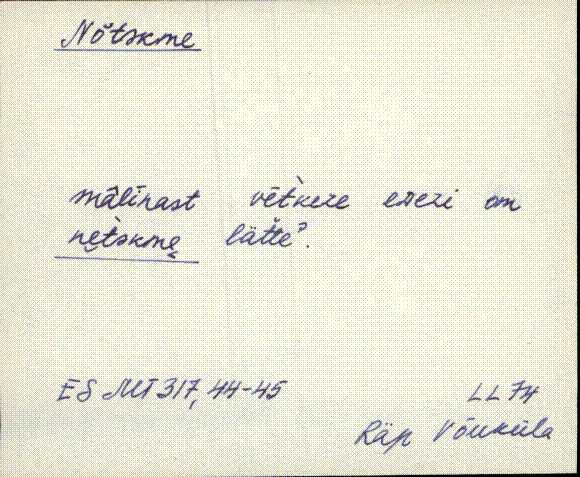 Nõtskme
mālinast vētkeze ezezi om
nētskme lätte?.
ES MT 317, 44-45
LL 74
Räp Võuküla